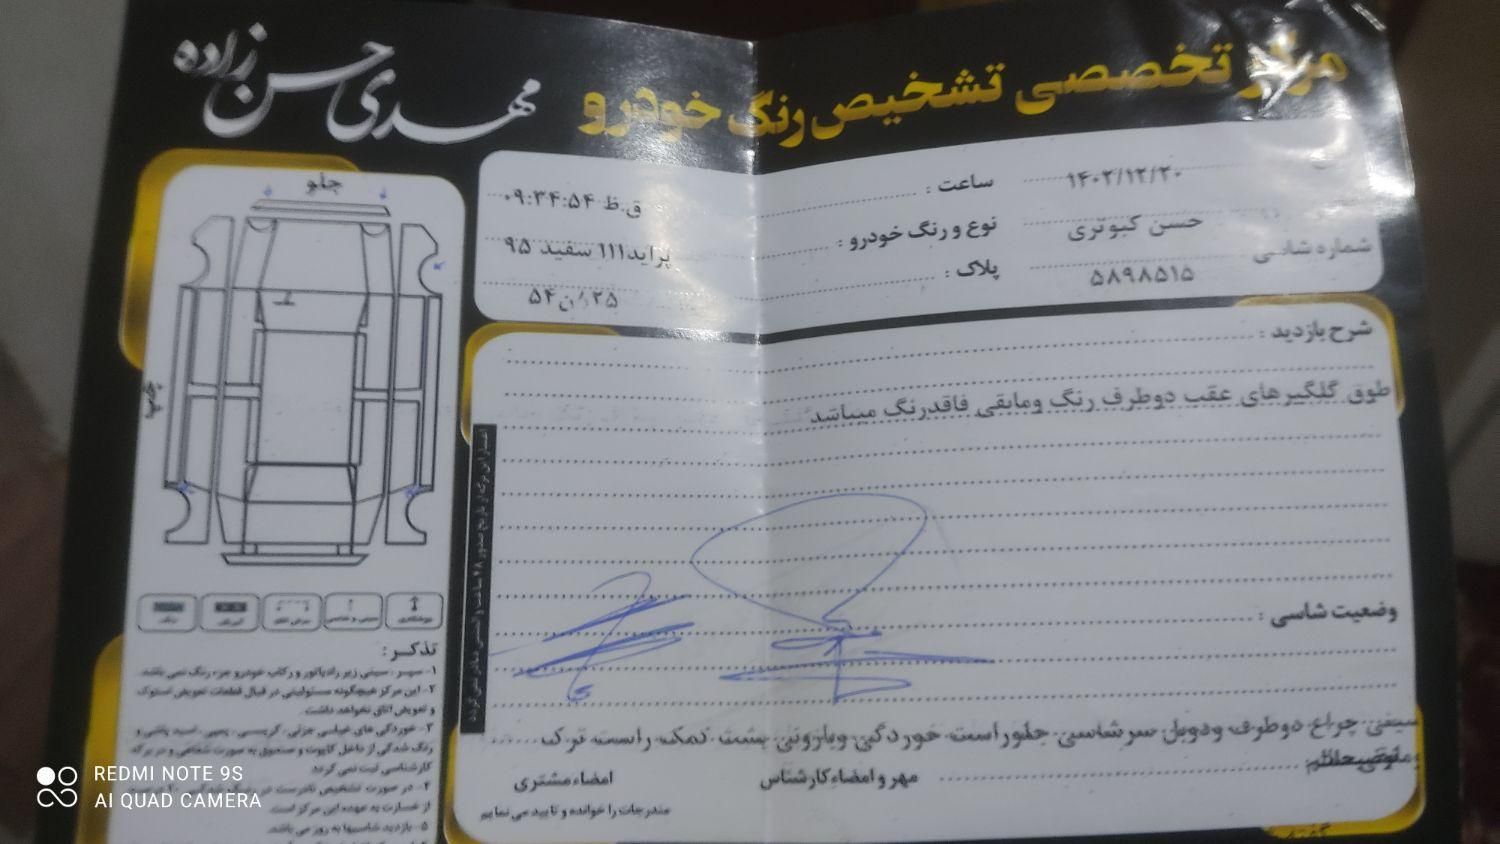 مرکز تخصصی تشخیص رنگ خودرو
مهدی حسن زاده
۱۴۰۲/۱۲/۲۰
ساعت :
۰۹:۳۴:۵۴ ق.ظ
حسن کبوتری
نوع و رنگ خودرو :
پراید۱۱۱ سفید ۹۵
شماره شاسی
۵۸۹۸۵۱۵
پلاک :
جلو
شرح بازدید :
طوق گلگیرهای عقب دوطرف رنگ ومابقی فاقدرنگ میباشد
وضعیت شاسی :
سینی چراغ دوطرف ودوبل سرشاسی جلوراست خوردگی وپارونی پشت کمک راست ترک
ومابقی سالم
مهر و امضاء کارشناس
امضاء مشتری
مندرجات را خوانده و تایید می نمایم
تذکر :
۱- سپر، سینی زیر رادیاتور و رکاب خودرو جزء رنگ نمی باشد.
۲- این مرکز هیچگونه مسئولیتی در قبال قطعات تعویض استوک
و تعویض اتاق نخواهد داشت.
رنگ شدگی از داخل کاپوت و صندوق به صورت شفاهی و در برگه
کارشناسی ثبت نمی گردد
از خسارت به عهده این مرکز است.
۵- بازدید شاسیها به روز می باشد.
REDMI NOTE 9S
AI QUAD CAMERA